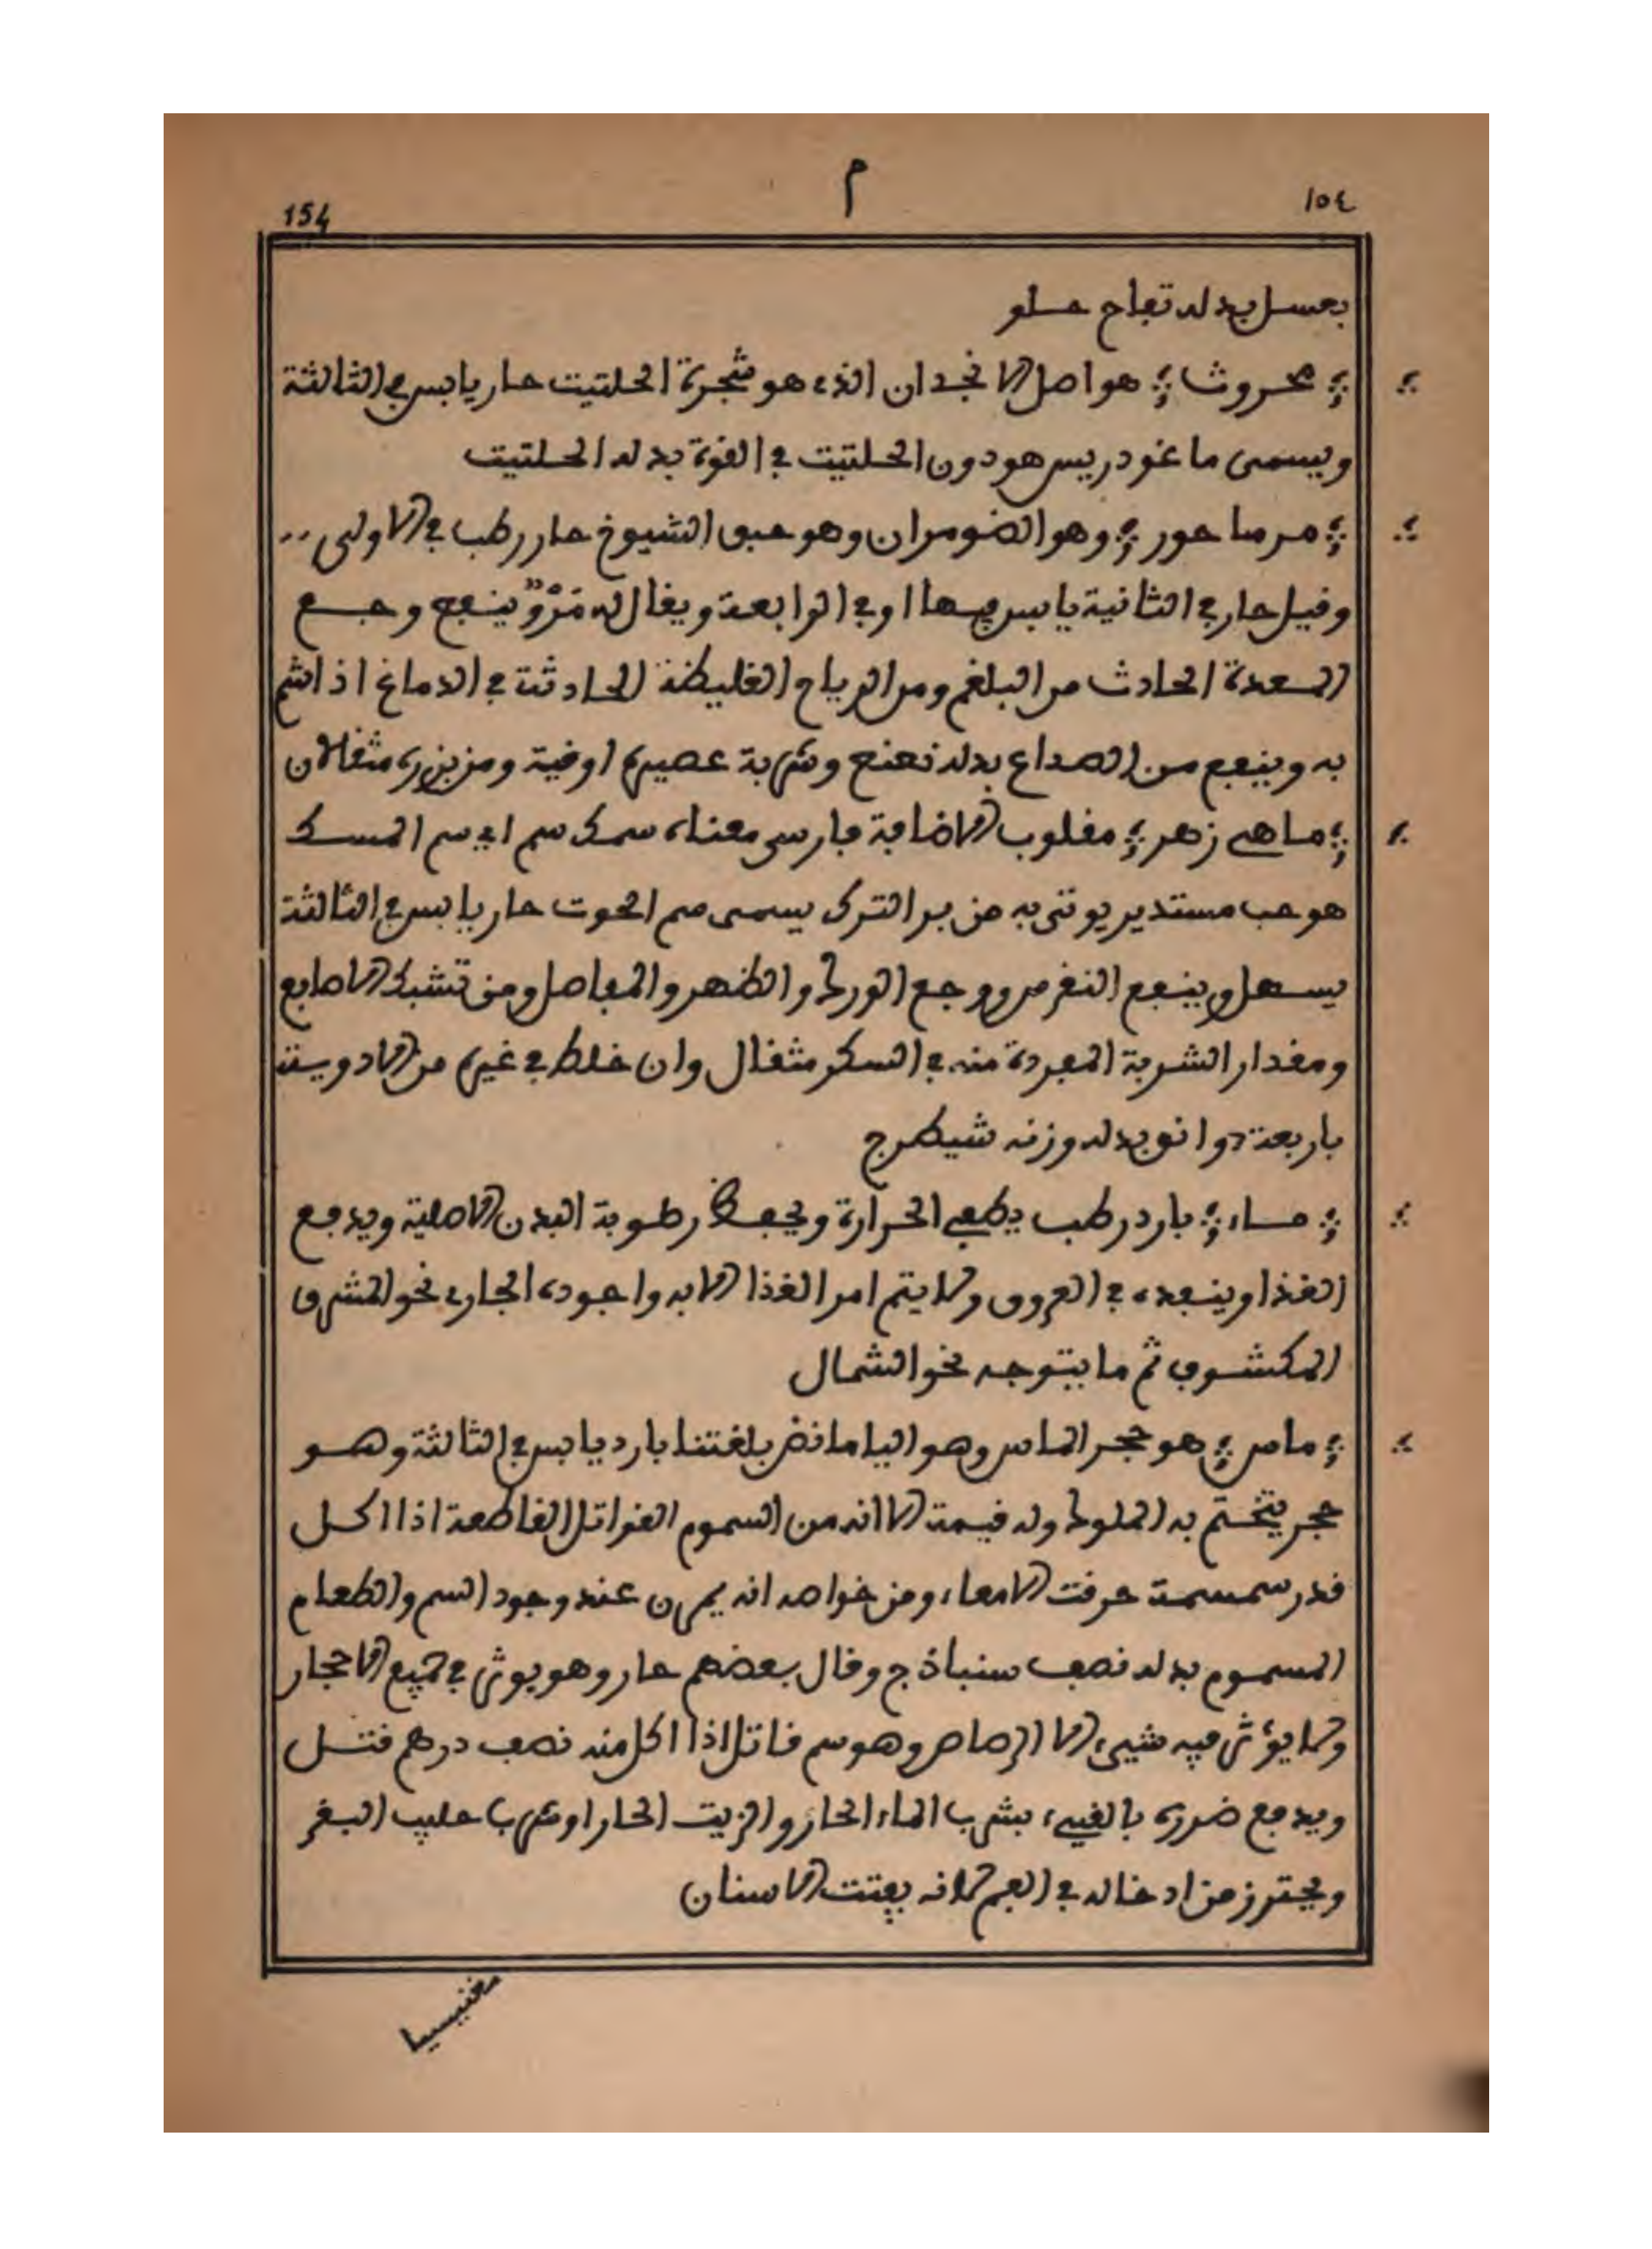 م
١٥٤
154
بعسل بدله تفاح حلو
محروث هو اصل الانجدان الذي هو شجرة الحلتيت حار يابس في الثالثة
ويسمى ماغودريس هو دون الحلتيت في القوة بدله الحلتيت
مرماحور وهو الضومران وهو حبق الشيوخ حار رطب في الاولى
وقيل حار في الثانية يابس فيها او في الرابعة ويقال له مَرْوٌ ينفع وجع
المعدة الحادث من البلغم ومن الرياح الغليظة الحادثة في الدماغ اذا اشم
به وينفع من الصداع بدله نعنع وشربة عصيره اوقية ومن بزره مثقالان
ماهي زهر مقلوب الاضافة فارسي معناه سمك سم اي سم السمك
هو حب مستدير يوتى به من بر الترك يسمى سم الحوت حار يابس في الثالثة
يسهل وينفع النقرس ووجع الورك والظهر والمفاصل ومن تشبك الاصابع
ومقدار الشربة المفردة منه في السكر مثقال وان خلط في غيره من الادوية
باربعة دوانق بدله وزنه شيطرج
ماء بارد رطب يطفي الحرارة ويحفظ رطوبة البدن الاصلية ويدفع
الغذا وينفده في العروق ولا يتم امر الغذا الا به واجوده الجاري نحو المشرق
المكشوف ثم ما يتوجه نحو الشمال
ماس هو حجر الماس وهو الياماننض بلغتنا بارد يابس في الثالثة وهو
حجر يتختم به الملوك وله قيمة الا انه من السموم القواتل القاطعة اذا اكل
قدر سمسمة حرقت الامعاء ومن خواصه انه يعرق عند وجود السم والطعام
المسموم بدله نصف سنباذج وقال بعضهم حار وهو يوثر في جميع الاحجار
ولا يؤثر فيه شيء الا الرصاص وهو سم قاتل اذا اكل منه نصف درهم قتل
ويدفع ضرره بالقيء بشرب الماء الحار والزيت الحار او شرب حليب البقر
ويحترز من ادخاله في الفم لانه يفتت الاسنان
مغنيسيا